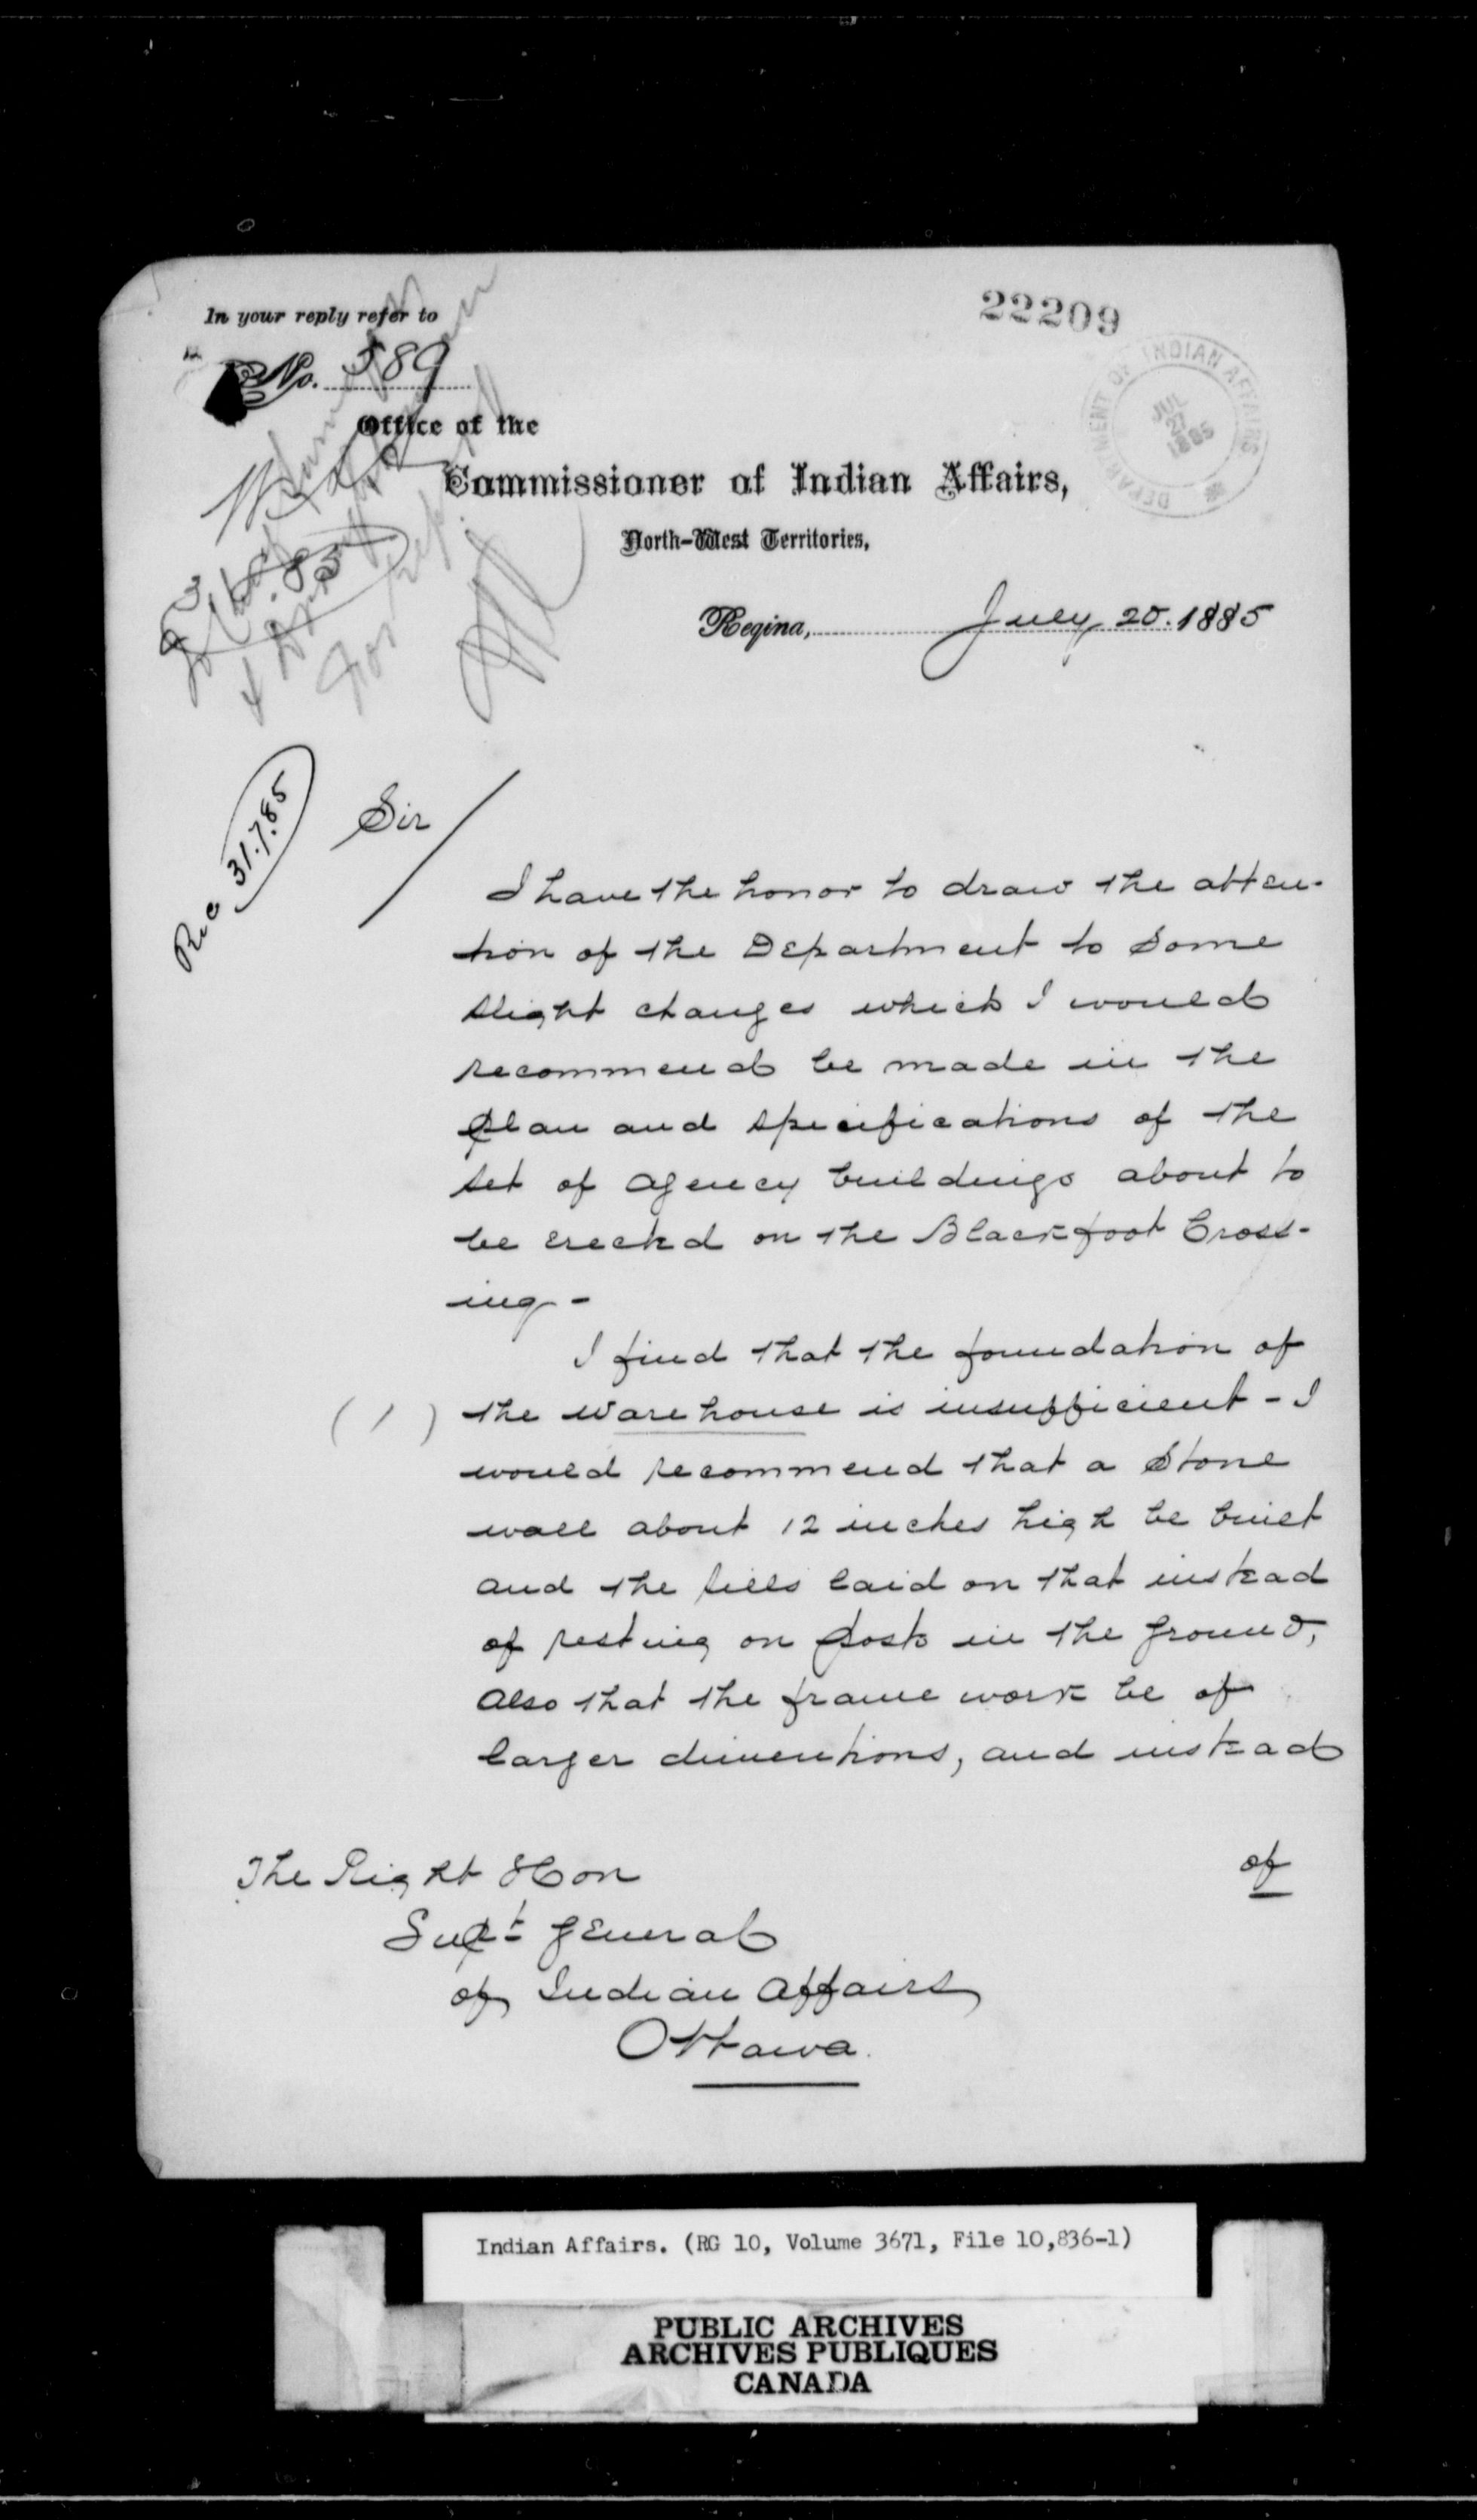 In your reply refer to
No. 589
22209
DEPARTMENT OF INDIAN AFFAIRS
JUL
27
1885
Office of the
Commissioner of Indian Affairs,
North-West Territories,
Regina, July 20. 1885
Rec 31.7.85
Sir
I have the honor to draw the atten-
tion of the Department to some
slight changes which I would
recommend be made in the
plan and specifications of the
set of agency buildings about to
be erected on the Blackfoot Cross-
ing -
I find that the foundation of
(1) the warehouse is insufficient - I
would recommend that a stone
wall about 12 inches high be built
and the sills laid on that instead
of resting on posts in the ground,
Also that the frame work be of
larger dimentions, and instead
of
The Right Hon
Supt General
of Indian Affairs
Ottawa.
Indian Affairs. (RG 10, Volume 3671, File 10,836-1)
PUBLIC ARCHIVES
ARCHIVES PUBLIQUES
CANADA